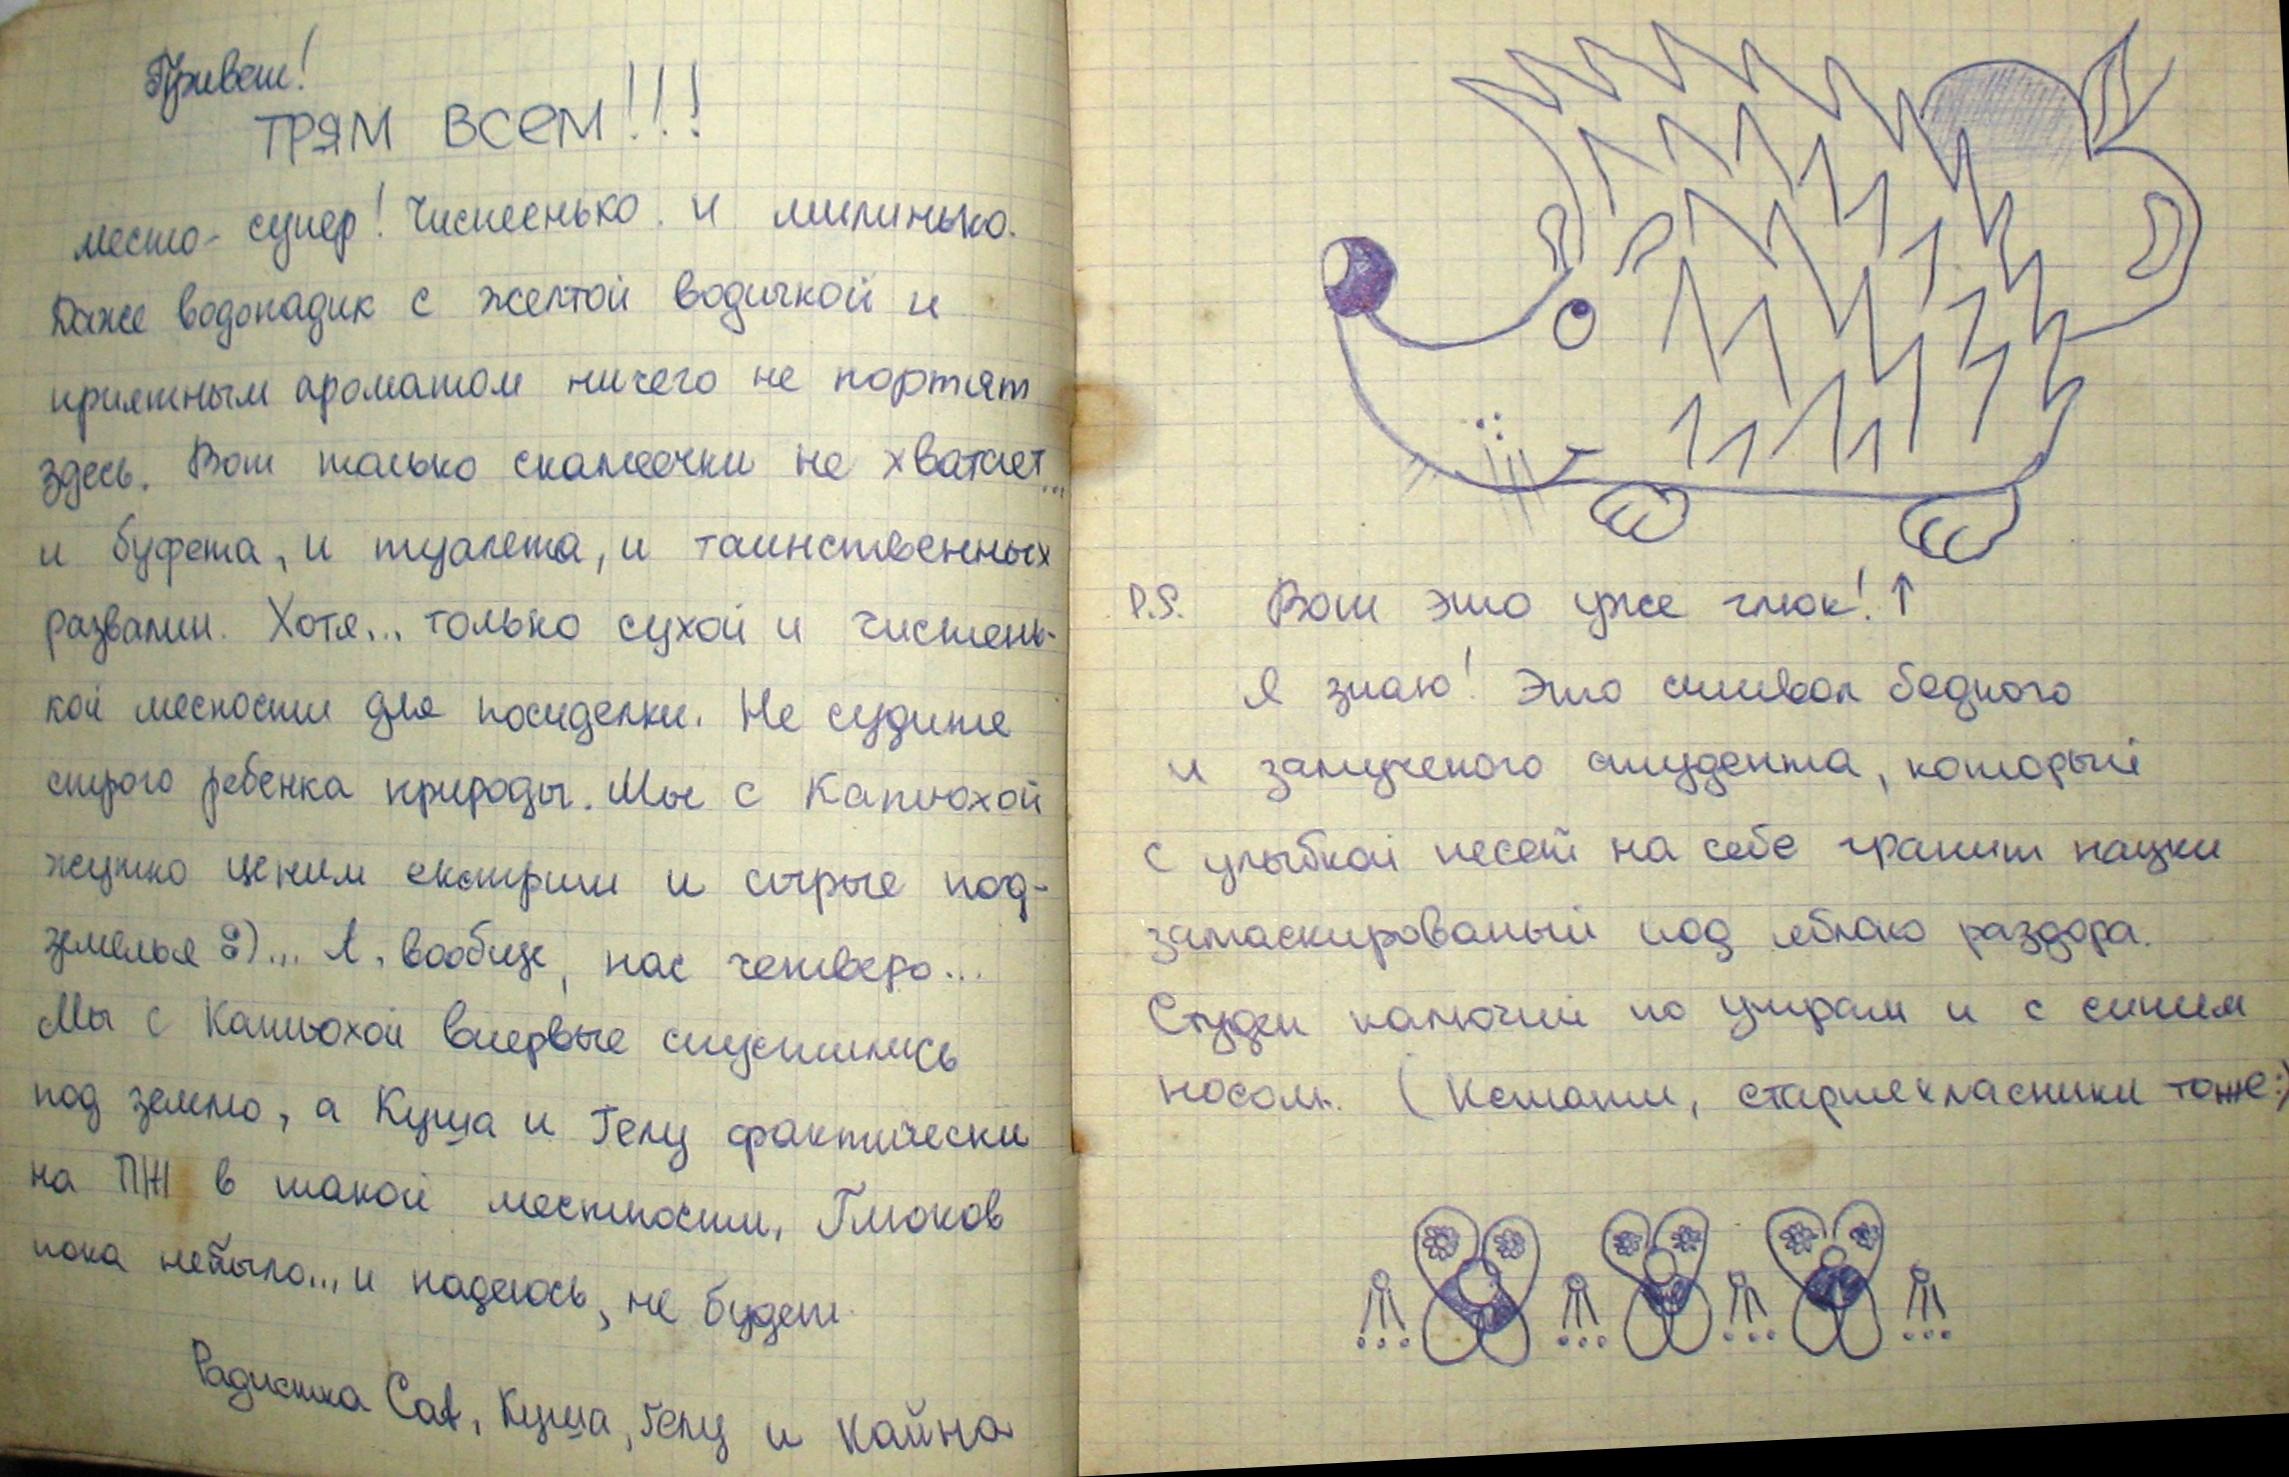 Привет!
ТРЯМ ВСЕМ!!!
место - супер! Чистеенько и милинько.
Даже водопадик с желтой водичкой и
приятным ароматом ничего не портят
здесь. Вот только скамеечки не хватает...
и буфета, и туалета, и таинственных
развалин. Хотя... только сухой и чистень-
кой месности для посиделки. Не судите
строго ребенка природы. Мы с Катюхой
жутко ценим екстрим и сырые под-
земелья :)... А, вообще, нас четверо...
Мы с Катюхой впервые спустились
под землю, а Куша и Гелу фактически
на ПЖ в такой местности. Глюков
пока небыло... и надеюсь, не будет.
Радистка Cat, Куша, Гелу и Кайна
P.S. Вот это уже глюк! ↑
Я знаю! Это символ бедного
и замученого студента, который
с улыбкой несет на себе гранит науки
замаскированый под яблоко раздора.
Студен колючий по утрам и с синим
носом. (Кстати, старшекласники тоже :)